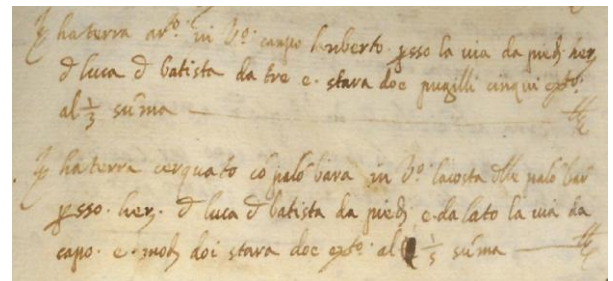 ha terra ar.º in v.º campo luberto psso la via da piedj herj
d luca d batista da tre e · stara doe pugilli cinqui
al 1/3 suma
ha terra cerquato cō palōbara in v.º lacosta palōbar
psso · herj · d luca d batista da piedj e da lato la via da
capo · e · modj doi stara doe al 1/5 suma